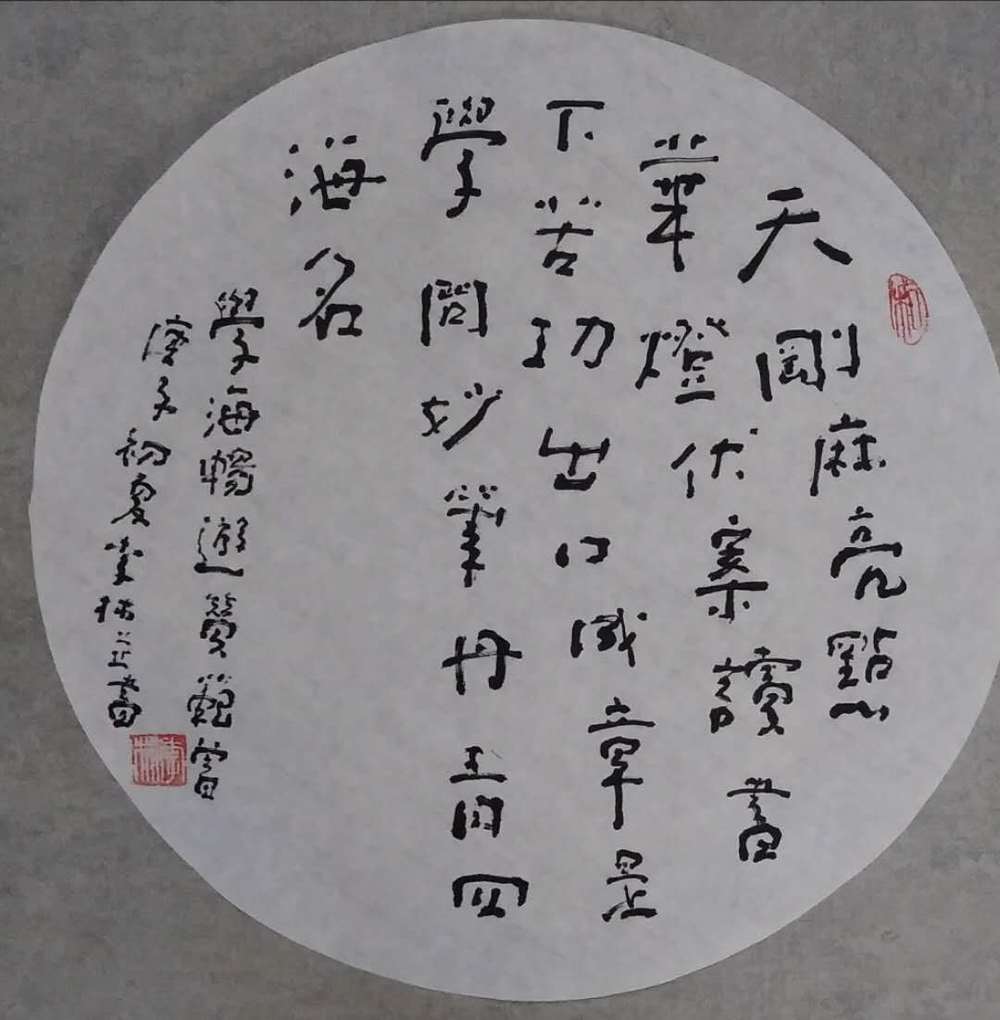 天剛麻亮點
華燈伏案讀書
下苦功出口成章是
學問妙筆丹青四
海名
學海暢遊
庚子初夏李
書